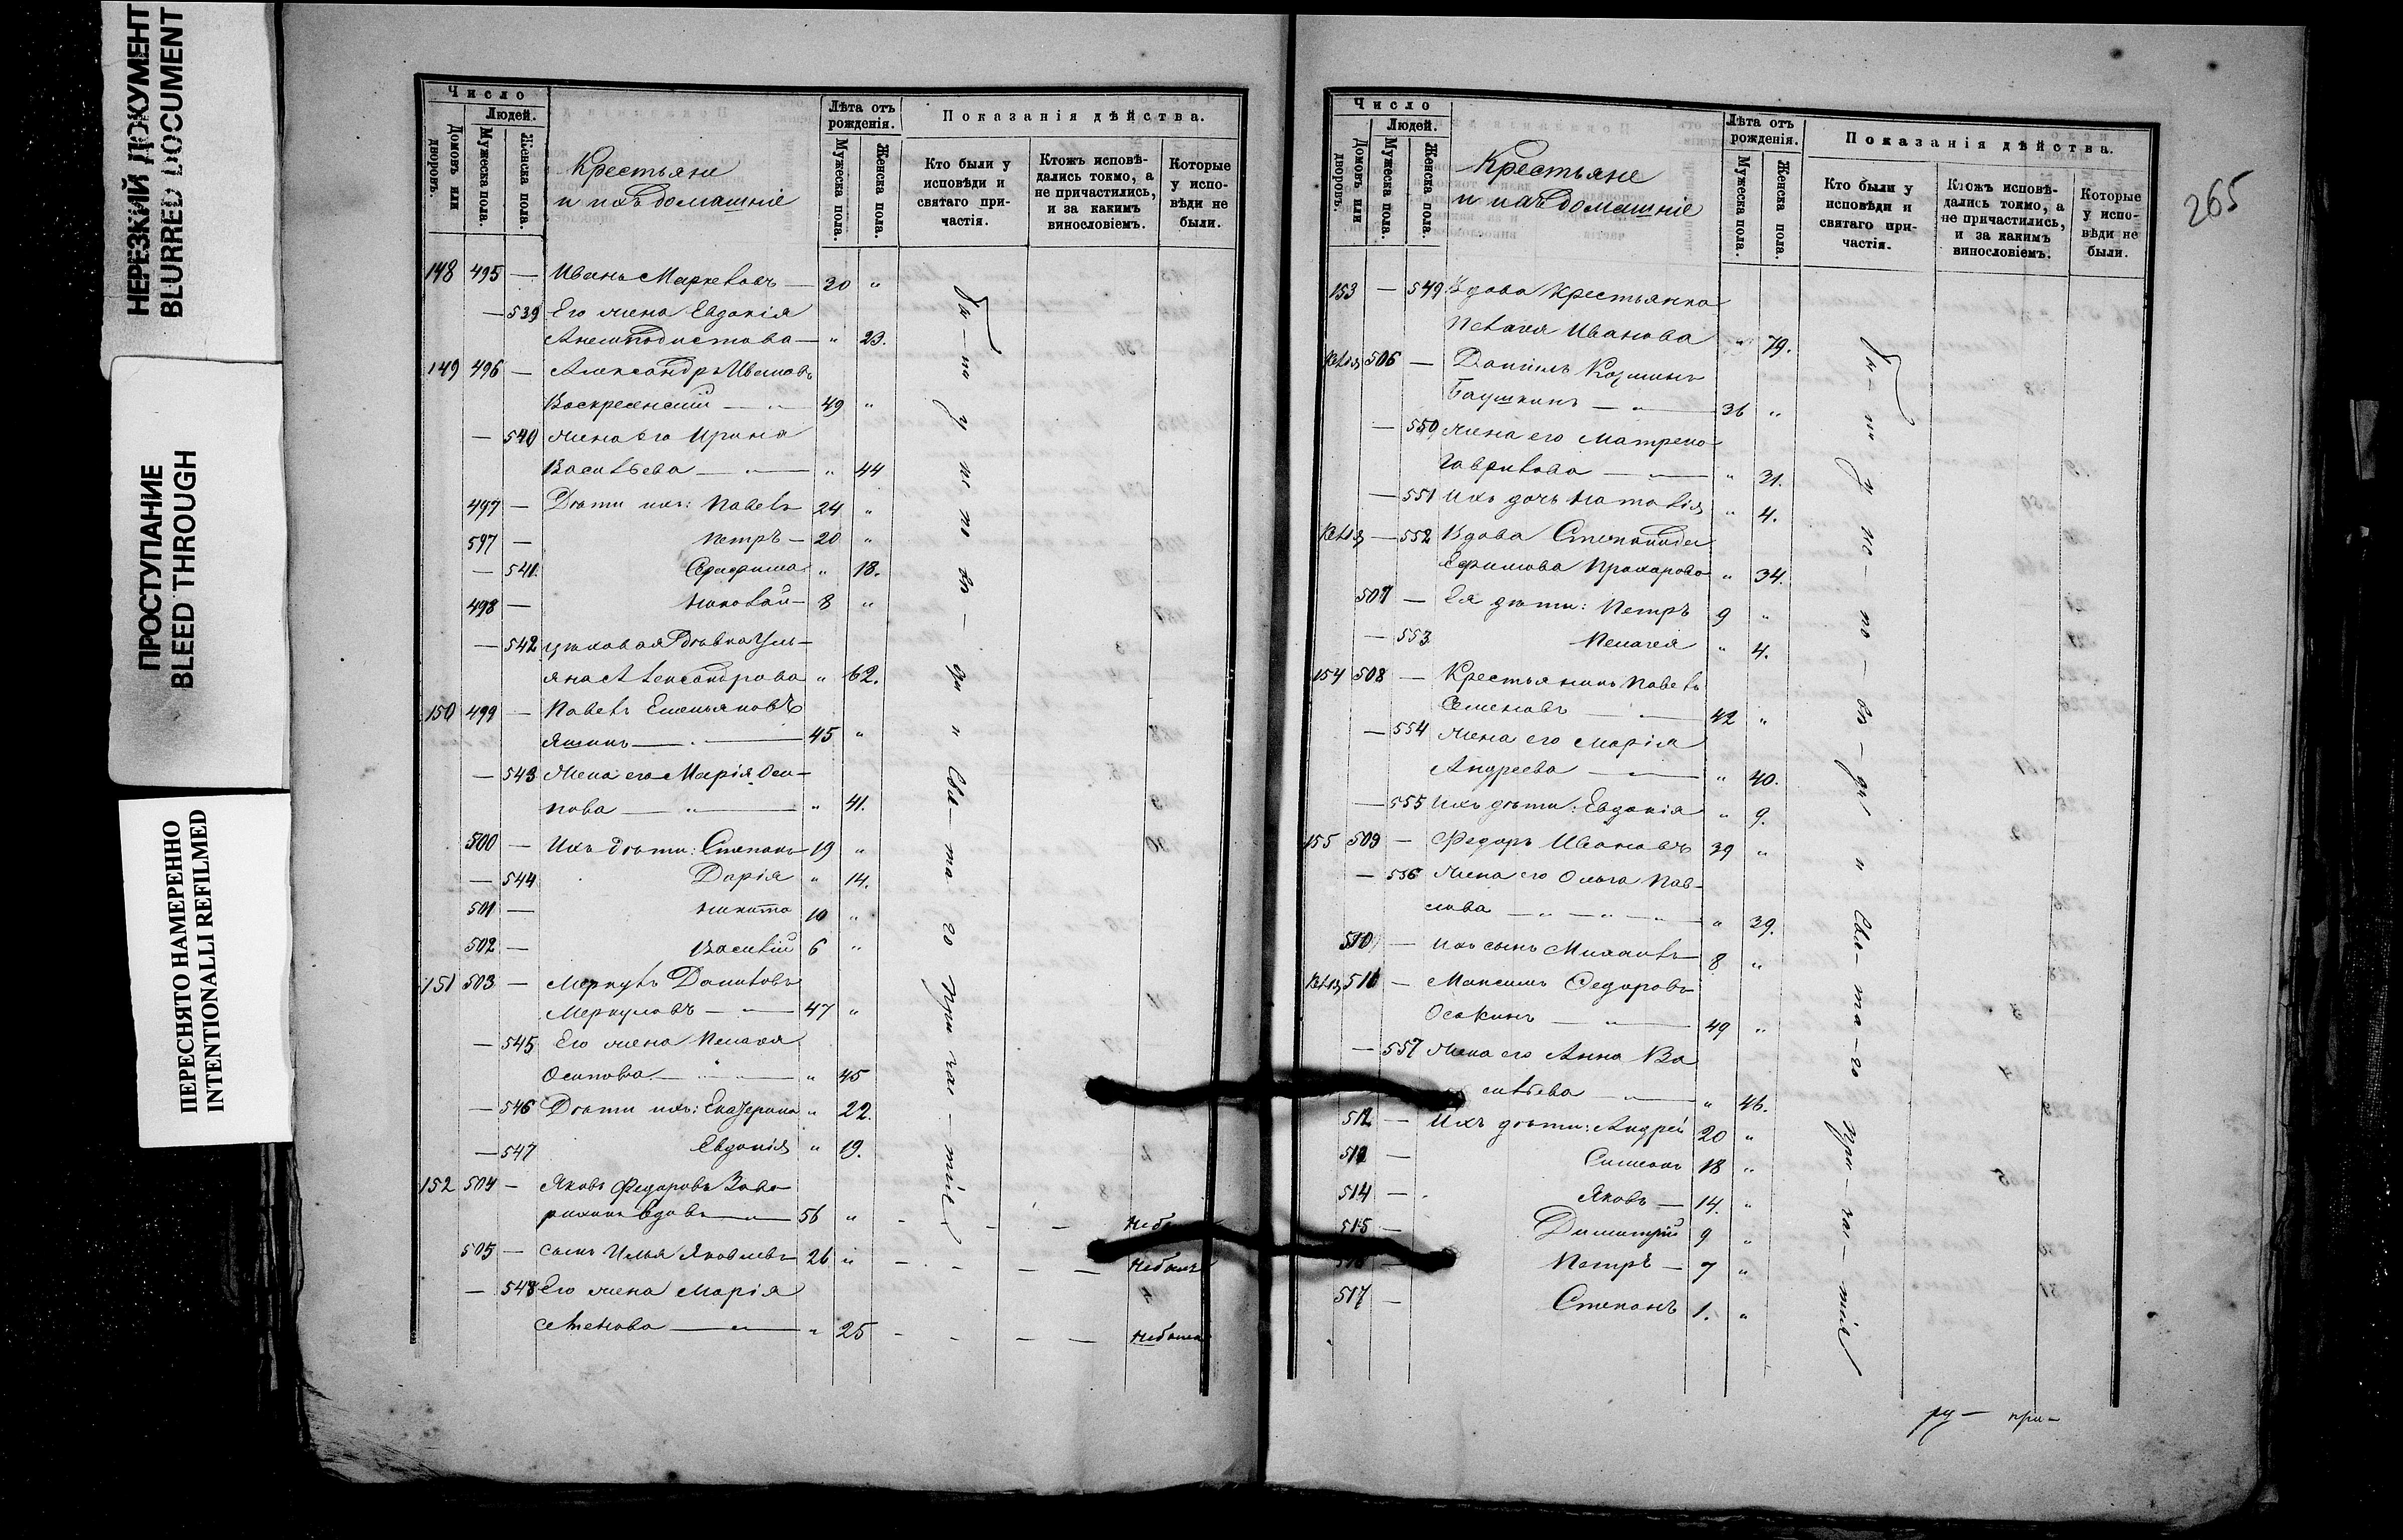 НЕРЕЗКИЙ ДОКУМЕНТ
BLURRED DOCUMENT
ПРОСТУПАНИЕ
BLEED THROUGH
ПЕРЕСНЯТО НАМЕРЕННО
INTENTIONALLI REFILMED
Число
Людей.
Домовъ или дворовъ.
Мужеска пола.
Женска пола.
Крестьяне
и ихъ домашніе
Лѣта отъ рожденія.
Мужеска пола.
Женска пола.
Показанія дѣйства.
Кто были у исповѣди и святаго причастія.
Ктожъ исповѣдались токмо, а не причастились, и за какимъ винословіемъ.
Которые у исповѣди не были.
148 495 — Иванъ Марковъ — 30 "
— 539 Его жена Евдокія
Анемподистова — " 23.
149 496 — Александръ Ивановъ
Воскресенскій — " — 49 "
— 540 жена его Ирина
Васильева — " — " 44
497 — Дѣти ихъ: Павелъ 24 "
597 — Петръ — 20 "
— 541. Серафима " 18.
498 — Николай — 8 "
— 542 Уль-
яна Александрова " 62.
150 499 — Павелъ Емельяновъ
Яшинъ — 45 "
— 543 Жена его Марія Оси-
пова — " — " 41.
500 — Ихъ дѣти: Степанъ 19 "
— 544 Дарія " 14.
501 — Никита 10 "
502 — Василій 6 "
151 503 — Меркулъ Даниловъ
Меркуловъ — " — 47 "
— 545 Его жена Пелагея
Осипова — " — " 45
— 546 Дѣти ихъ: Екатерина " 22.
— 547 Евдокія " 19.
152 504 — Яковъ Федоровъ
вдовъ — 56 " - - -
505 — сынъ Илья Яковлевъ 26 " - - - — Небылъ
— 548 Его жена Марія
Семенова — " — " 25 - - — — Небыла
у и с по вѣ — ди и Свя — та го При час — тія
265
Число
Людей.
Домовъ или дворовъ.
Мужеска пола.
Женска пола.
Крестьяне
и ихъ домашніе
Лѣта отъ рожденія.
Мужеска пола.
Женска пола.
Показанія дѣйства.
Кто были у исповѣди и святаго причастія.
Ктожъ исповѣдались токмо, а не причастились, и за какимъ винословіемъ.
Которые у исповѣди не были.
153 — 549 Вдова крестьянка
Пелагея Иванова " 79.
506 — Даніилъ Козминъ
Баушкинъ — " — 36 "
— 550 жена его Матрена
Гаврилова — " — " 31.
— 551 Ихъ дочь Наталія " 4.
— 552 Вдова Степанида
Ефимова Прохорова " 34.
507 — Ея дѣти: Петръ 9 "
— 553 Пелагея " 4.
154 508 — Крестьянинъ Павелъ
Семеновъ — " — 42 "
— 554 Жена его Марія
Андреева — " — " 40.
— 555 Ихъ дѣти: Евдокія " 9.
155 509 — Федоръ Ивановъ 39 "
— 556 Жена его Ольга Пав-
лова — " — " — " 39.
510 — Ихъ сынъ Михаилъ 8 "
511 — Максимъ Федоровъ
Осокинъ — " — 49 "
— 557 Жена его Анна Ва
сильева — " — " 46.
512 — Ихъ дѣти: Андрей 20 "
513 — Симеонъ 18 "
514 — Яковъ — 14. "
515 — Димитрій 9 "
516 — Петръ — 7 "
517 — Степанъ 1. "
у ис — по — вѣ — ди и Свя — та — го при — час — тія
ру — при —